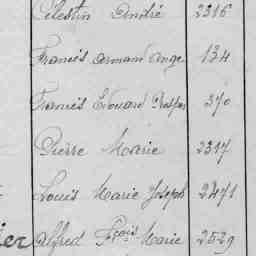 Célestin André 2316
Francis Armand Ange 134
Francis Edouard Prosper 370
Pierre Marie 2317
Louis Marie Joseph 2471
ier Alfred Fçois Marie 2529